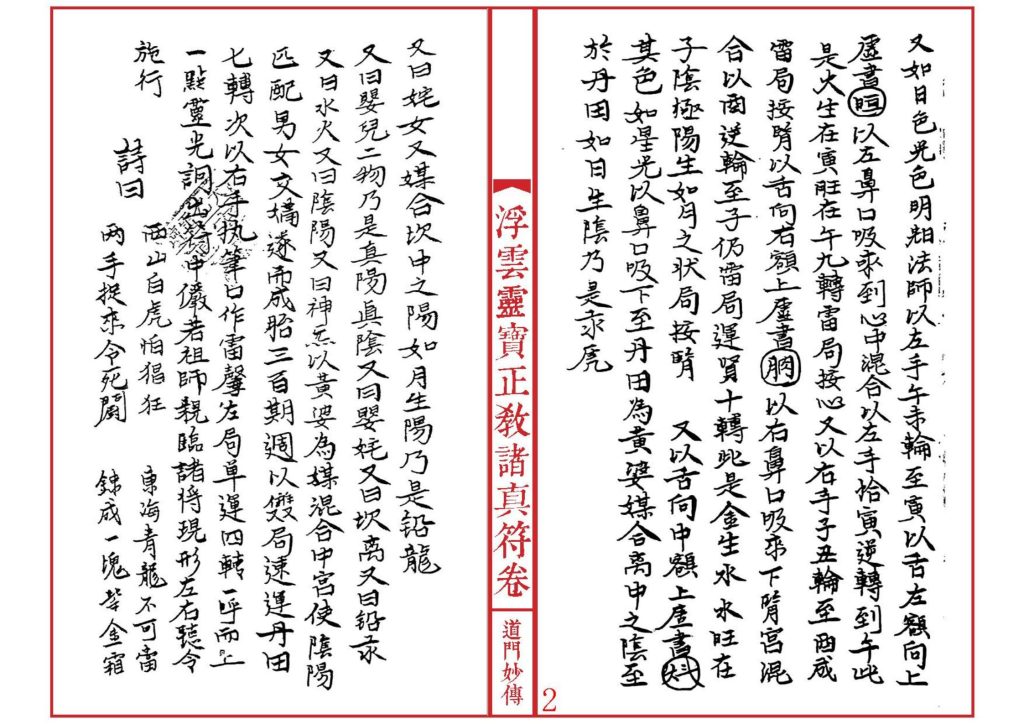 又如日色光色明朗法師以左手午未輪至寅以舌左額向上
虛書㫜以左鼻口吸炁到心中混合以左手恰寅逆轉到午此
是火生在寅旺在午九轉雷局按心又以右手子丑輪至酉戌
雷局按腎以舌向右額上虛書 以右鼻口吸炁下腎宮混
合以酉逆輪至子仍雷局運腎十轉此是金生水水旺在
子陰極陽生如月之狀局按腎 又以舌向中額上虛書
其色如星光以鼻口吸下至丹田為黃婆媒合离中之陰至
於丹田如日生陰乃是汞虎
浮雲靈寶正教諸真符卷
道門妙傳
2
又曰姹女又媒合坎中之陽如月生陽乃是鉛龍
又曰嬰兒二物乃是真陽真陰又曰嬰姹又曰坎离又曰鉛汞
又曰水火又曰陰陽又曰神炁以黃婆為媒混合中宮使陰陽
匹配男女交媾遂而成胎三百期週以雙局速運丹田
七轉次以右手執筆口作雷聲左局單運四轉一呼而上
一點靈光詞出符中儼若祖師親臨諸將現形左右聽令
施行
詩曰
西山白虎怕猖狂 東海青龍不可當
兩手捉來令死鬪 鍊成一塊紫金霜